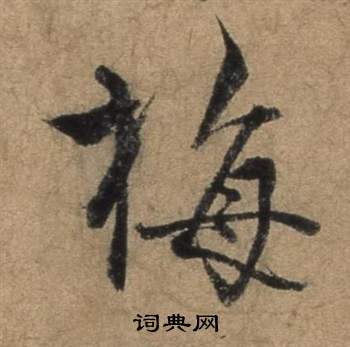 梅
词典网